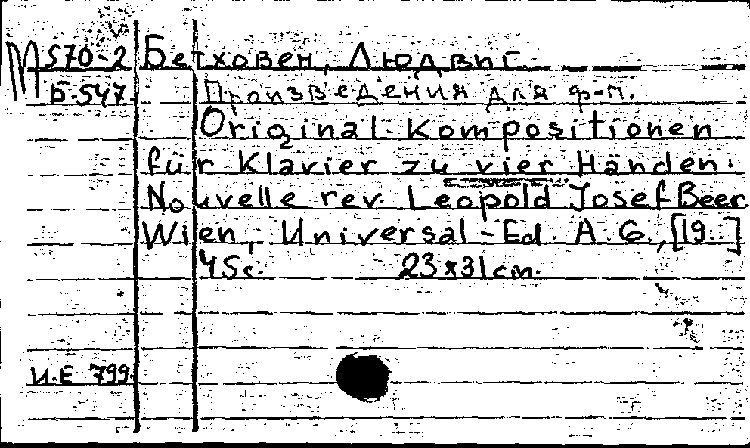 М 570-2 Бетховен, Людвиг
Б-547 Произведения для ф-п.
Original Kompositionen
für Klavier zu vier Händen.
Nouvelle rev. Leopold Josef Beer
Wien, Universal-Ed. A. G., [19..]
45c. 23x31cm.
И.Е 799